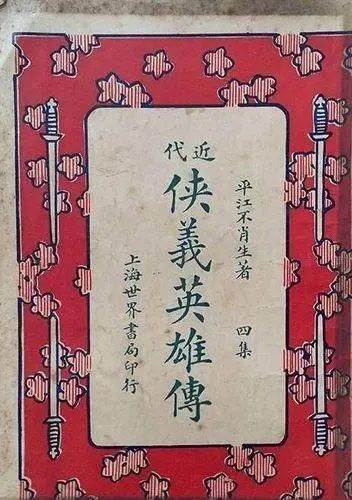 近代
侠義英雄傳
平江不肖生著 四集
上海世界書局印行